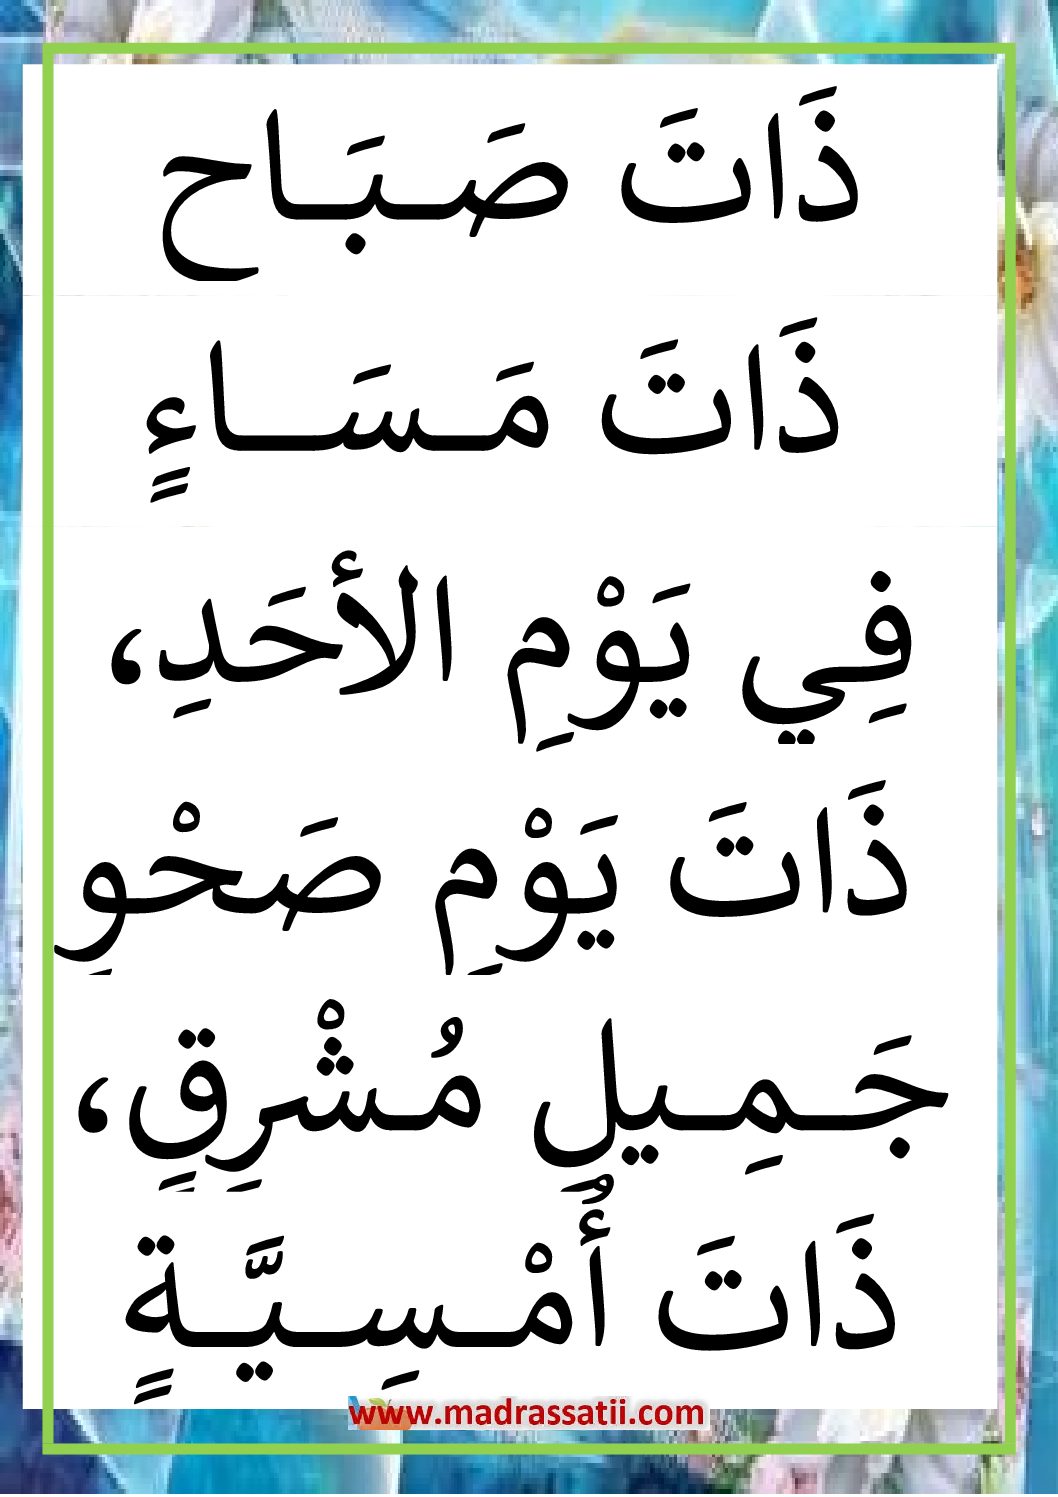 ذَاتَ صَبَاح
ذَاتَ مَسَاءٍ
فِي يَوْمِ الأحَدِ،
ذَاتَ يَوْمِ صَحْوِ
جَمِيلِ مُشْرِقٍ،
ذَاتَ أُمْسِيَّةٍ
www.madrassatii.com